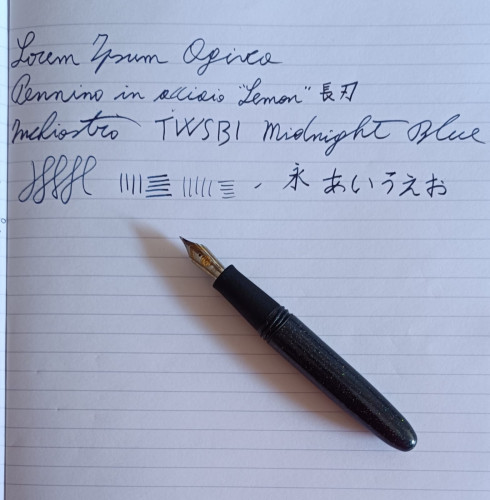 Lorem Ipsum Ogiva
Pennino in acciaio "Lemon" 長刃
Inchiostro TWSBI Midnight Blue
永 あいうえお